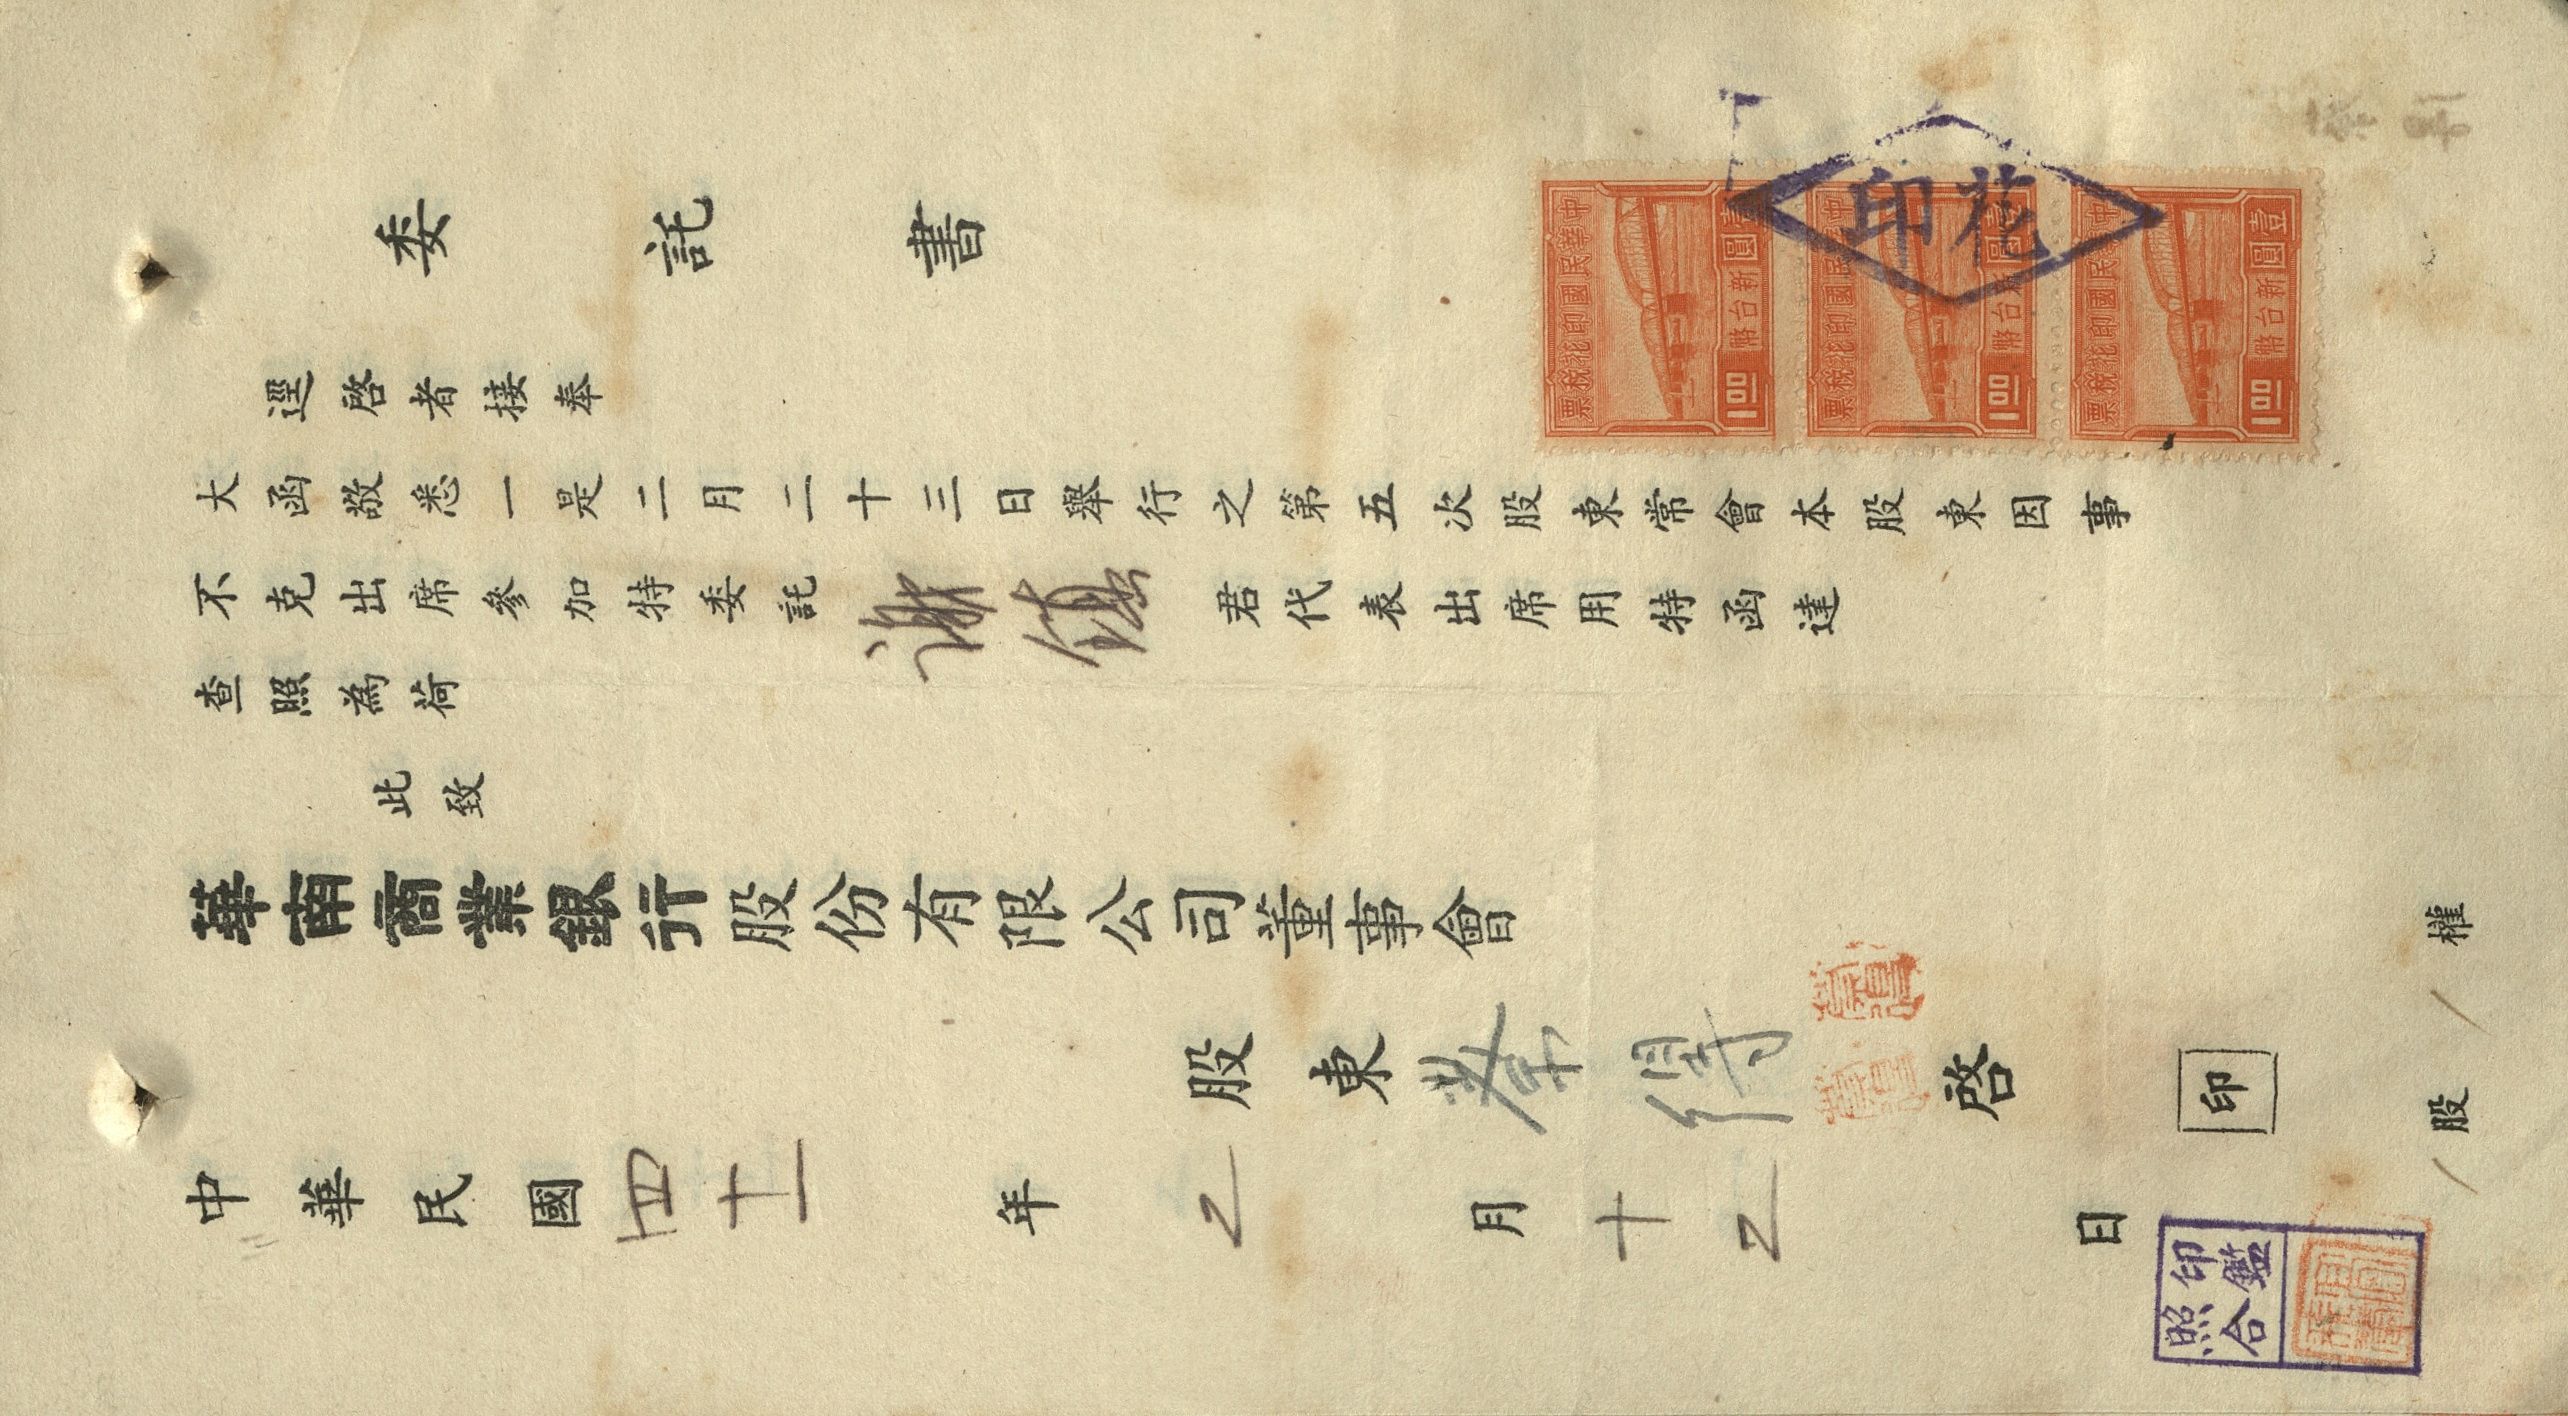 委託書
逕啓者接奉
大函敬悉一是二月二十三日舉行之第五次股東常會本股東因事
不克出席參加特委託謝鎮君代表出席用特函達
查照為荷
此致
華南商業銀行股份有限公司董事會
股東 啓 印
中華民國四十一年2月十2日
/股/權
中華民國印花稅票
壹圓
新台幣
1.00
中華民國印花稅票
壹圓
新台幣
1.00
中華民國印花稅票
壹圓
新台幣
1.00
印花
印鑑
照合